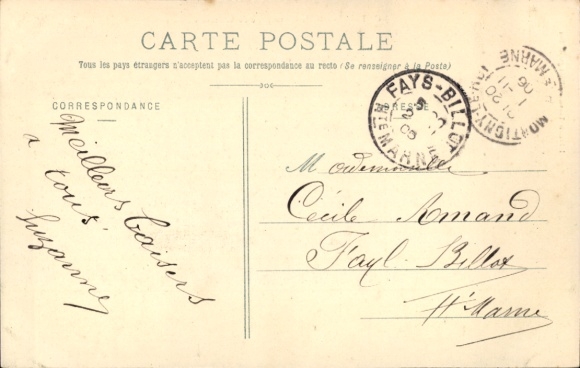 CARTE POSTALE
Tous les pays étrangers n'acceptent pas la correspondance au recto (Se renseigner à la Poste)
CORRESPONDANCE
ADRESSE
Meilleurs baisers
à tous
Suzanne
Mademoiselle
Cécile Amand
Fayl-Billot
Hte Marne
FAYS-BILLOT
Hte MARNE
MONTIGNY-
Hte MARNE